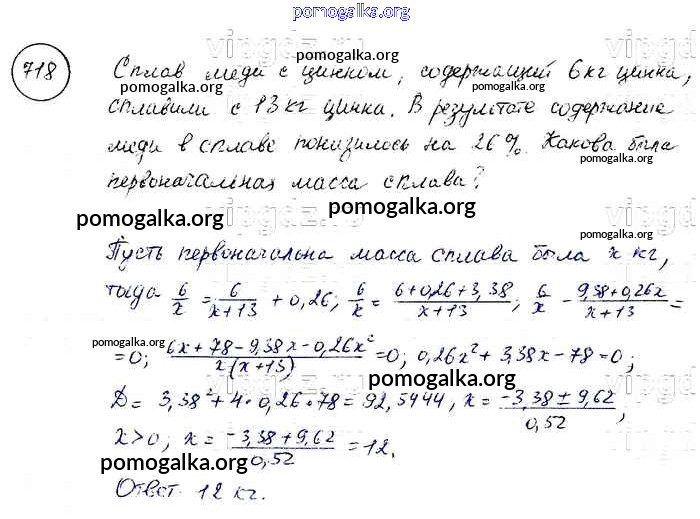 pomogalka.org
718
Сплав меди с цинком, содержащий 6 кг цинка,
сплавили с 13 кг цинка. В результате содержание
меди в сплаве понизилось на 26 %. Какова была
первоначальная масса сплава?
pomogalka.org
pomogalka.org
Пусть первоначальна масса сплава была x кг,
тогда 6/x = 6/(x+13) + 0,26; 6/x = (6+0,26+3,38)/(x+13); 6/x - (9,38+0,26x)/(x+13) =
= 0; (6x+78-9,38x-0,26x²)/(x(x+13)) = 0; 0,26x²+3,38x-78=0;
pomogalka.org
D = 3,38²+4·0,26·78 = 92,5444, x = (-3,38±9,62)/0,52;
x>0; x = (-3,38+9,62)/0,52 = 12.
pomogalka.org
Ответ. 12 кг.